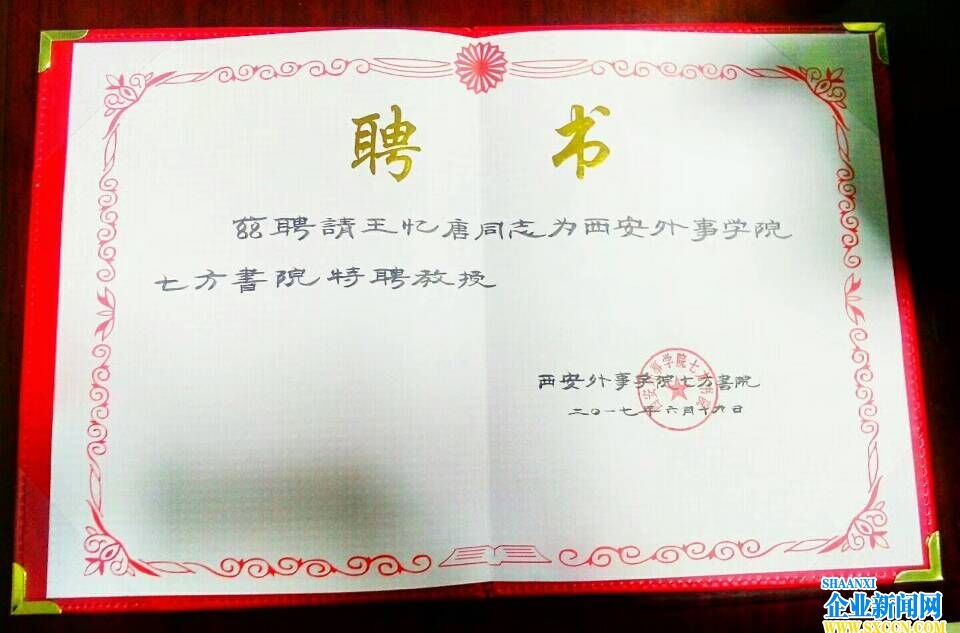 聘书
兹聘請王忆唐同志为西安外事学院
七方書院特聘教授
西安外事学院七方書院
二〇一七年六月十九日
西安外事学院七方书院
SHAANXI
企业新闻网
WWW.SXCCN.COM